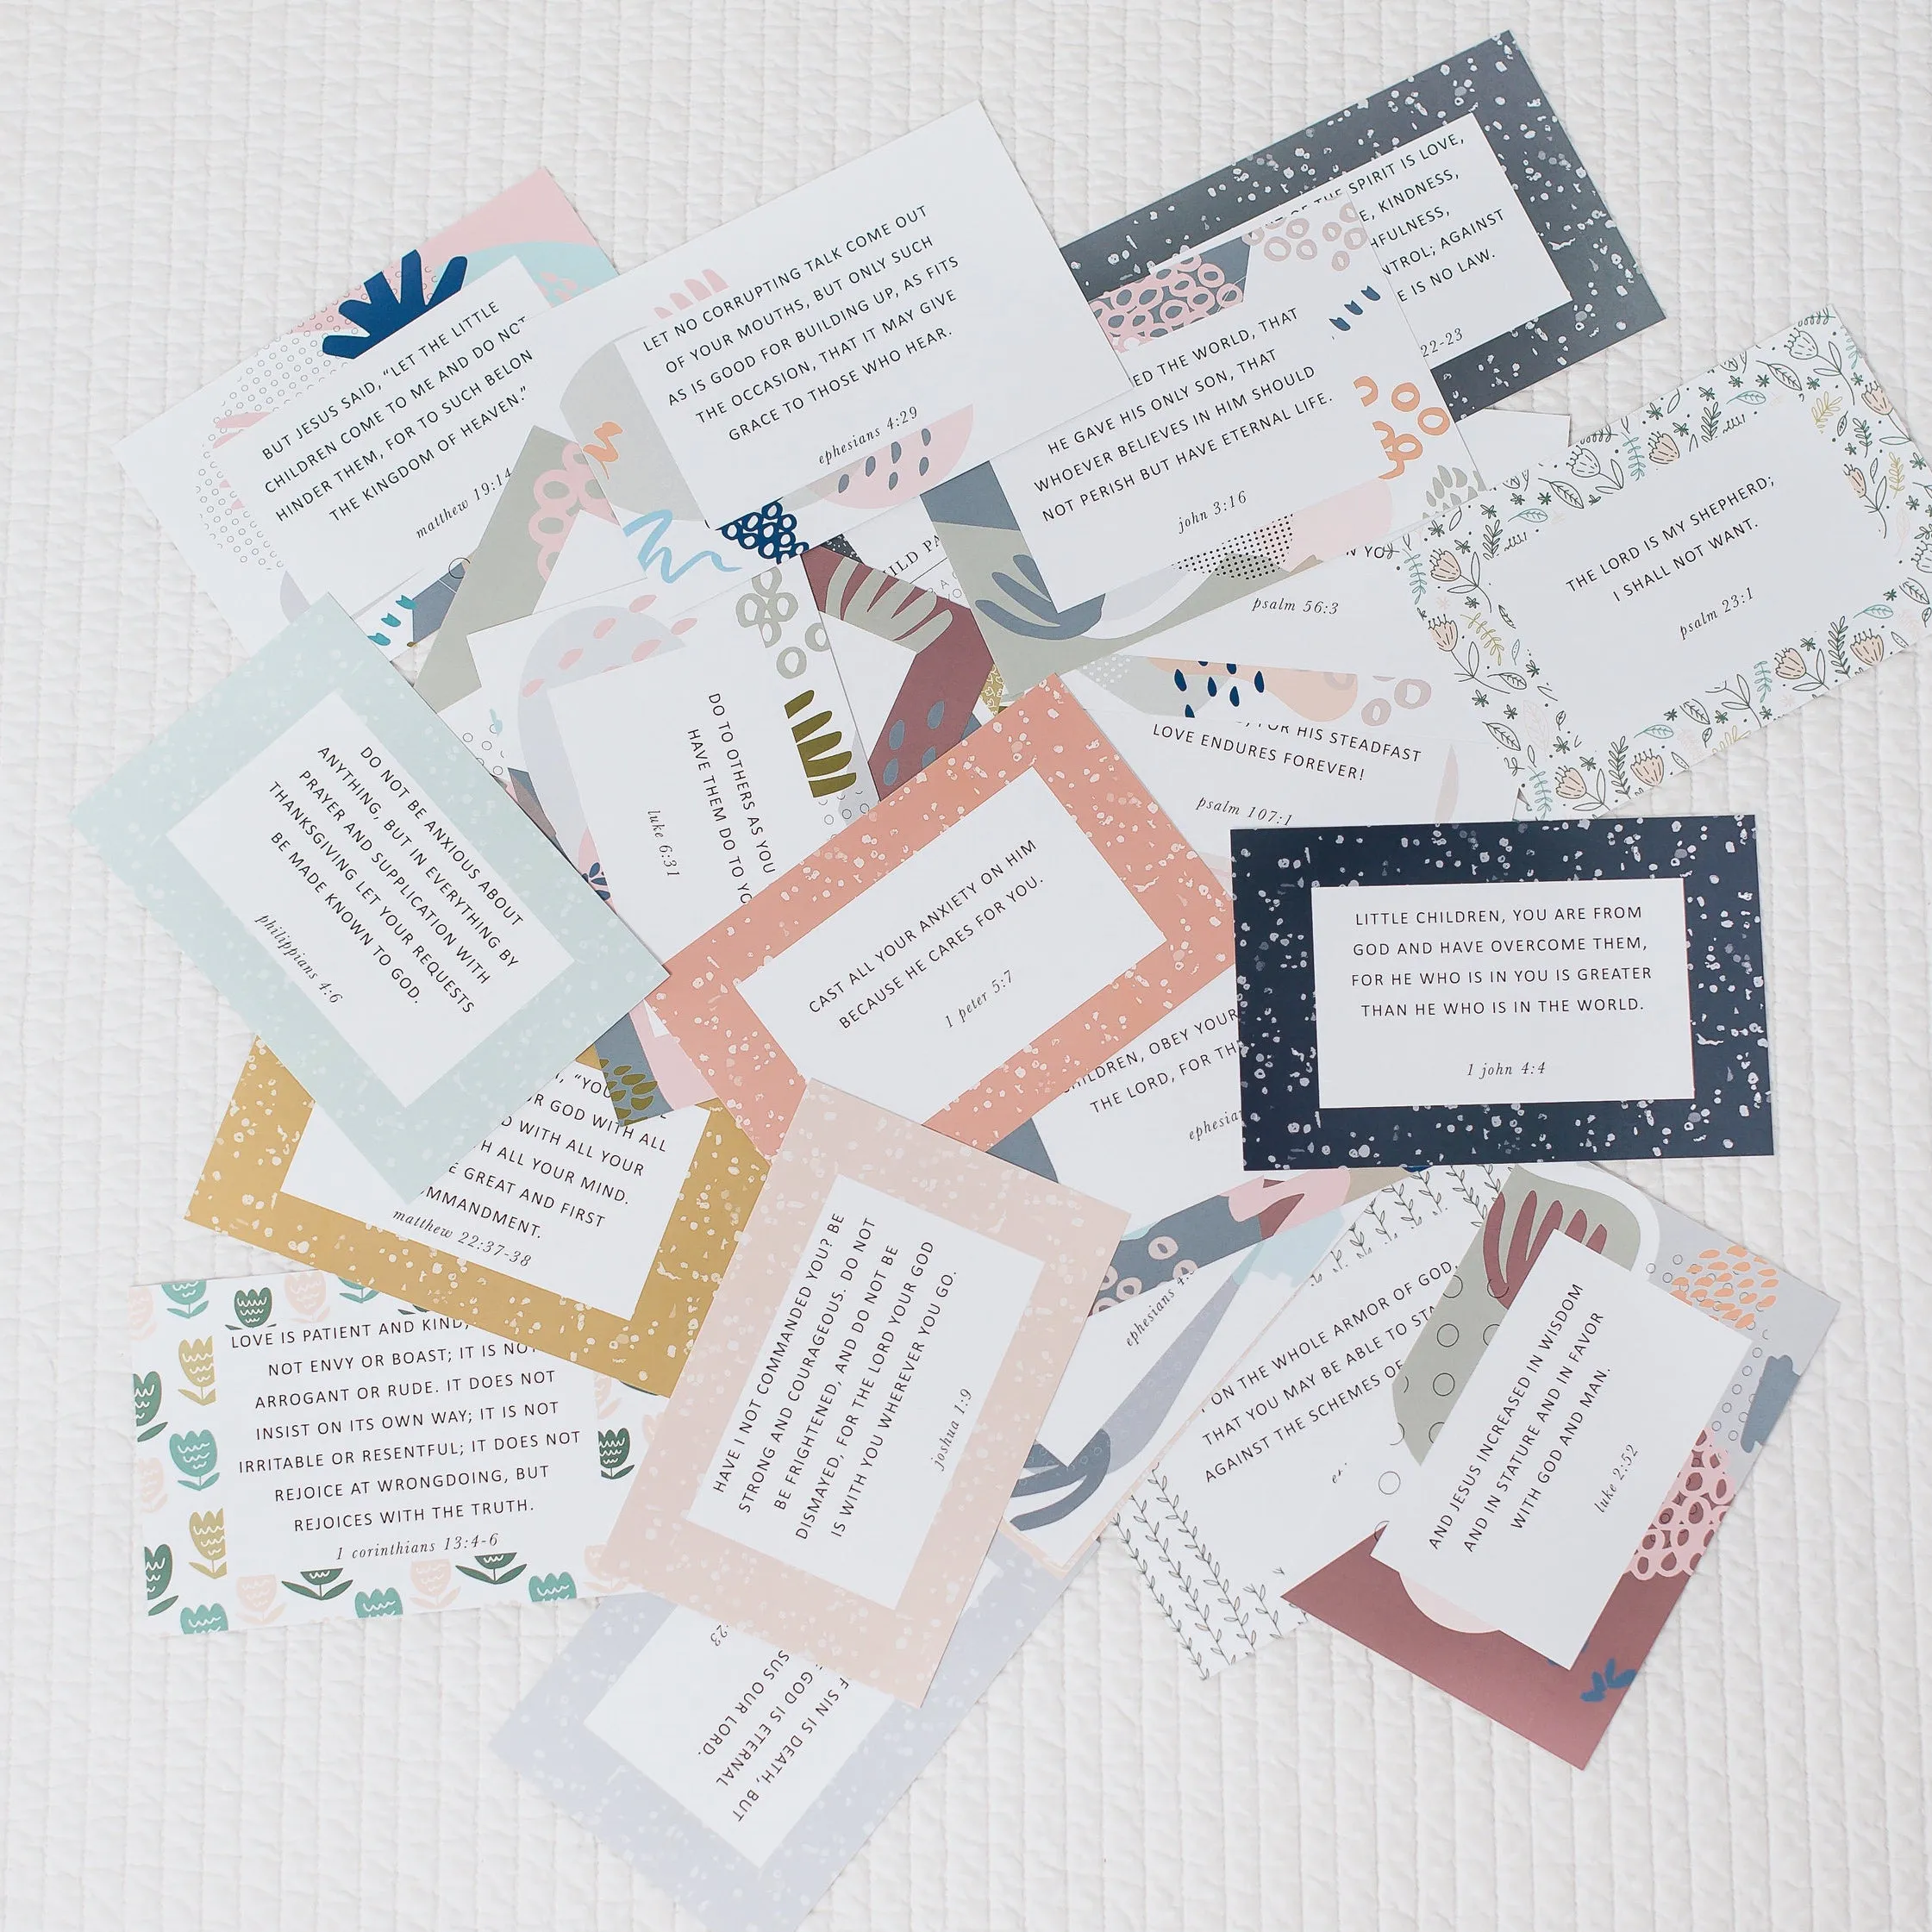 BUT JESUS SAID, “LET THE LITTLE
CHILDREN COME TO ME AND DO NOT
HINDER THEM, FOR TO SUCH BELON
THE KINGDOM OF HEAVEN.”
matthew 19:14
LET NO CORRUPTING TALK COME OUT
OF YOUR MOUTHS, BUT ONLY SUCH
AS IS GOOD FOR BUILDING UP, AS FITS
THE OCCASION, THAT IT MAY GIVE
GRACE TO THOSE WHO HEAR.
ephesians 4:29
OF THE SPIRIT IS LOVE,
E, KINDNESS,
HFULNESS,
NTROL; AGAINST
E IS NO LAW.
22-23
ED THE WORLD, THAT
HE GAVE HIS ONLY SON, THAT
WHOEVER BELIEVES IN HIM SHOULD
NOT PERISH BUT HAVE ETERNAL LIFE.
john 3:16
THE LORD IS MY SHEPHERD;
I SHALL NOT WANT.
psalm 23:1
N YOU
psalm 56:3
ILD PA
DO TO OTHERS AS YOU
HAVE THEM DO TO YO
luke 6:31
FOR HIS STEADFAST
LOVE ENDURES FOREVER!
psalm 107:1
DO NOT BE ANXIOUS ABOUT
ANYTHING, BUT IN EVERYTHING BY
PRAYER AND SUPPLICATION WITH
THANKSGIVING LET YOUR REQUESTS
BE MADE KNOWN TO GOD.
philippians 4:6
CAST ALL YOUR ANXIETY ON HIM
BECAUSE HE CARES FOR YOU.
1 peter 5:7
LITTLE CHILDREN, YOU ARE FROM
GOD AND HAVE OVERCOME THEM,
FOR HE WHO IS IN YOU IS GREATER
THAN HE WHO IS IN THE WORLD.
1 john 4:4
HILDREN, OBEY YOUR
THE LORD, FOR TH
ephesia
, “YOU
R GOD WITH ALL
D WITH ALL YOUR
H ALL YOUR MIND.
E GREAT AND FIRST
MMANDMENT.
matthew 22:37-38
LOVE IS PATIENT AND KIND;
NOT ENVY OR BOAST; IT IS NOT
ARROGANT OR RUDE. IT DOES NOT
INSIST ON ITS OWN WAY; IT IS NOT
IRRITABLE OR RESENTFUL; IT DOES NOT
REJOICE AT WRONGDOING, BUT
REJOICES WITH THE TRUTH.
1 corinthians 13:4-6
HAVE I NOT COMMANDED YOU? BE
STRONG AND COURAGEOUS. DO NOT
BE FRIGHTENED, AND DO NOT BE
DISMAYED, FOR THE LORD YOUR GOD
IS WITH YOU WHEREVER YOU GO.
joshua 1:9
ephesians 4:
ON THE WHOLE ARMOR OF GOD,
THAT YOU MAY BE ABLE TO STA
AGAINST THE SCHEMES OF
AND JESUS INCREASED IN WISDOM
AND IN STATURE AND IN FAVOR
WITH GOD AND MAN.
luke 2:52
F SIN IS DEATH, BUT
GOD IS ETERNAL
SUS OUR LORD.
23